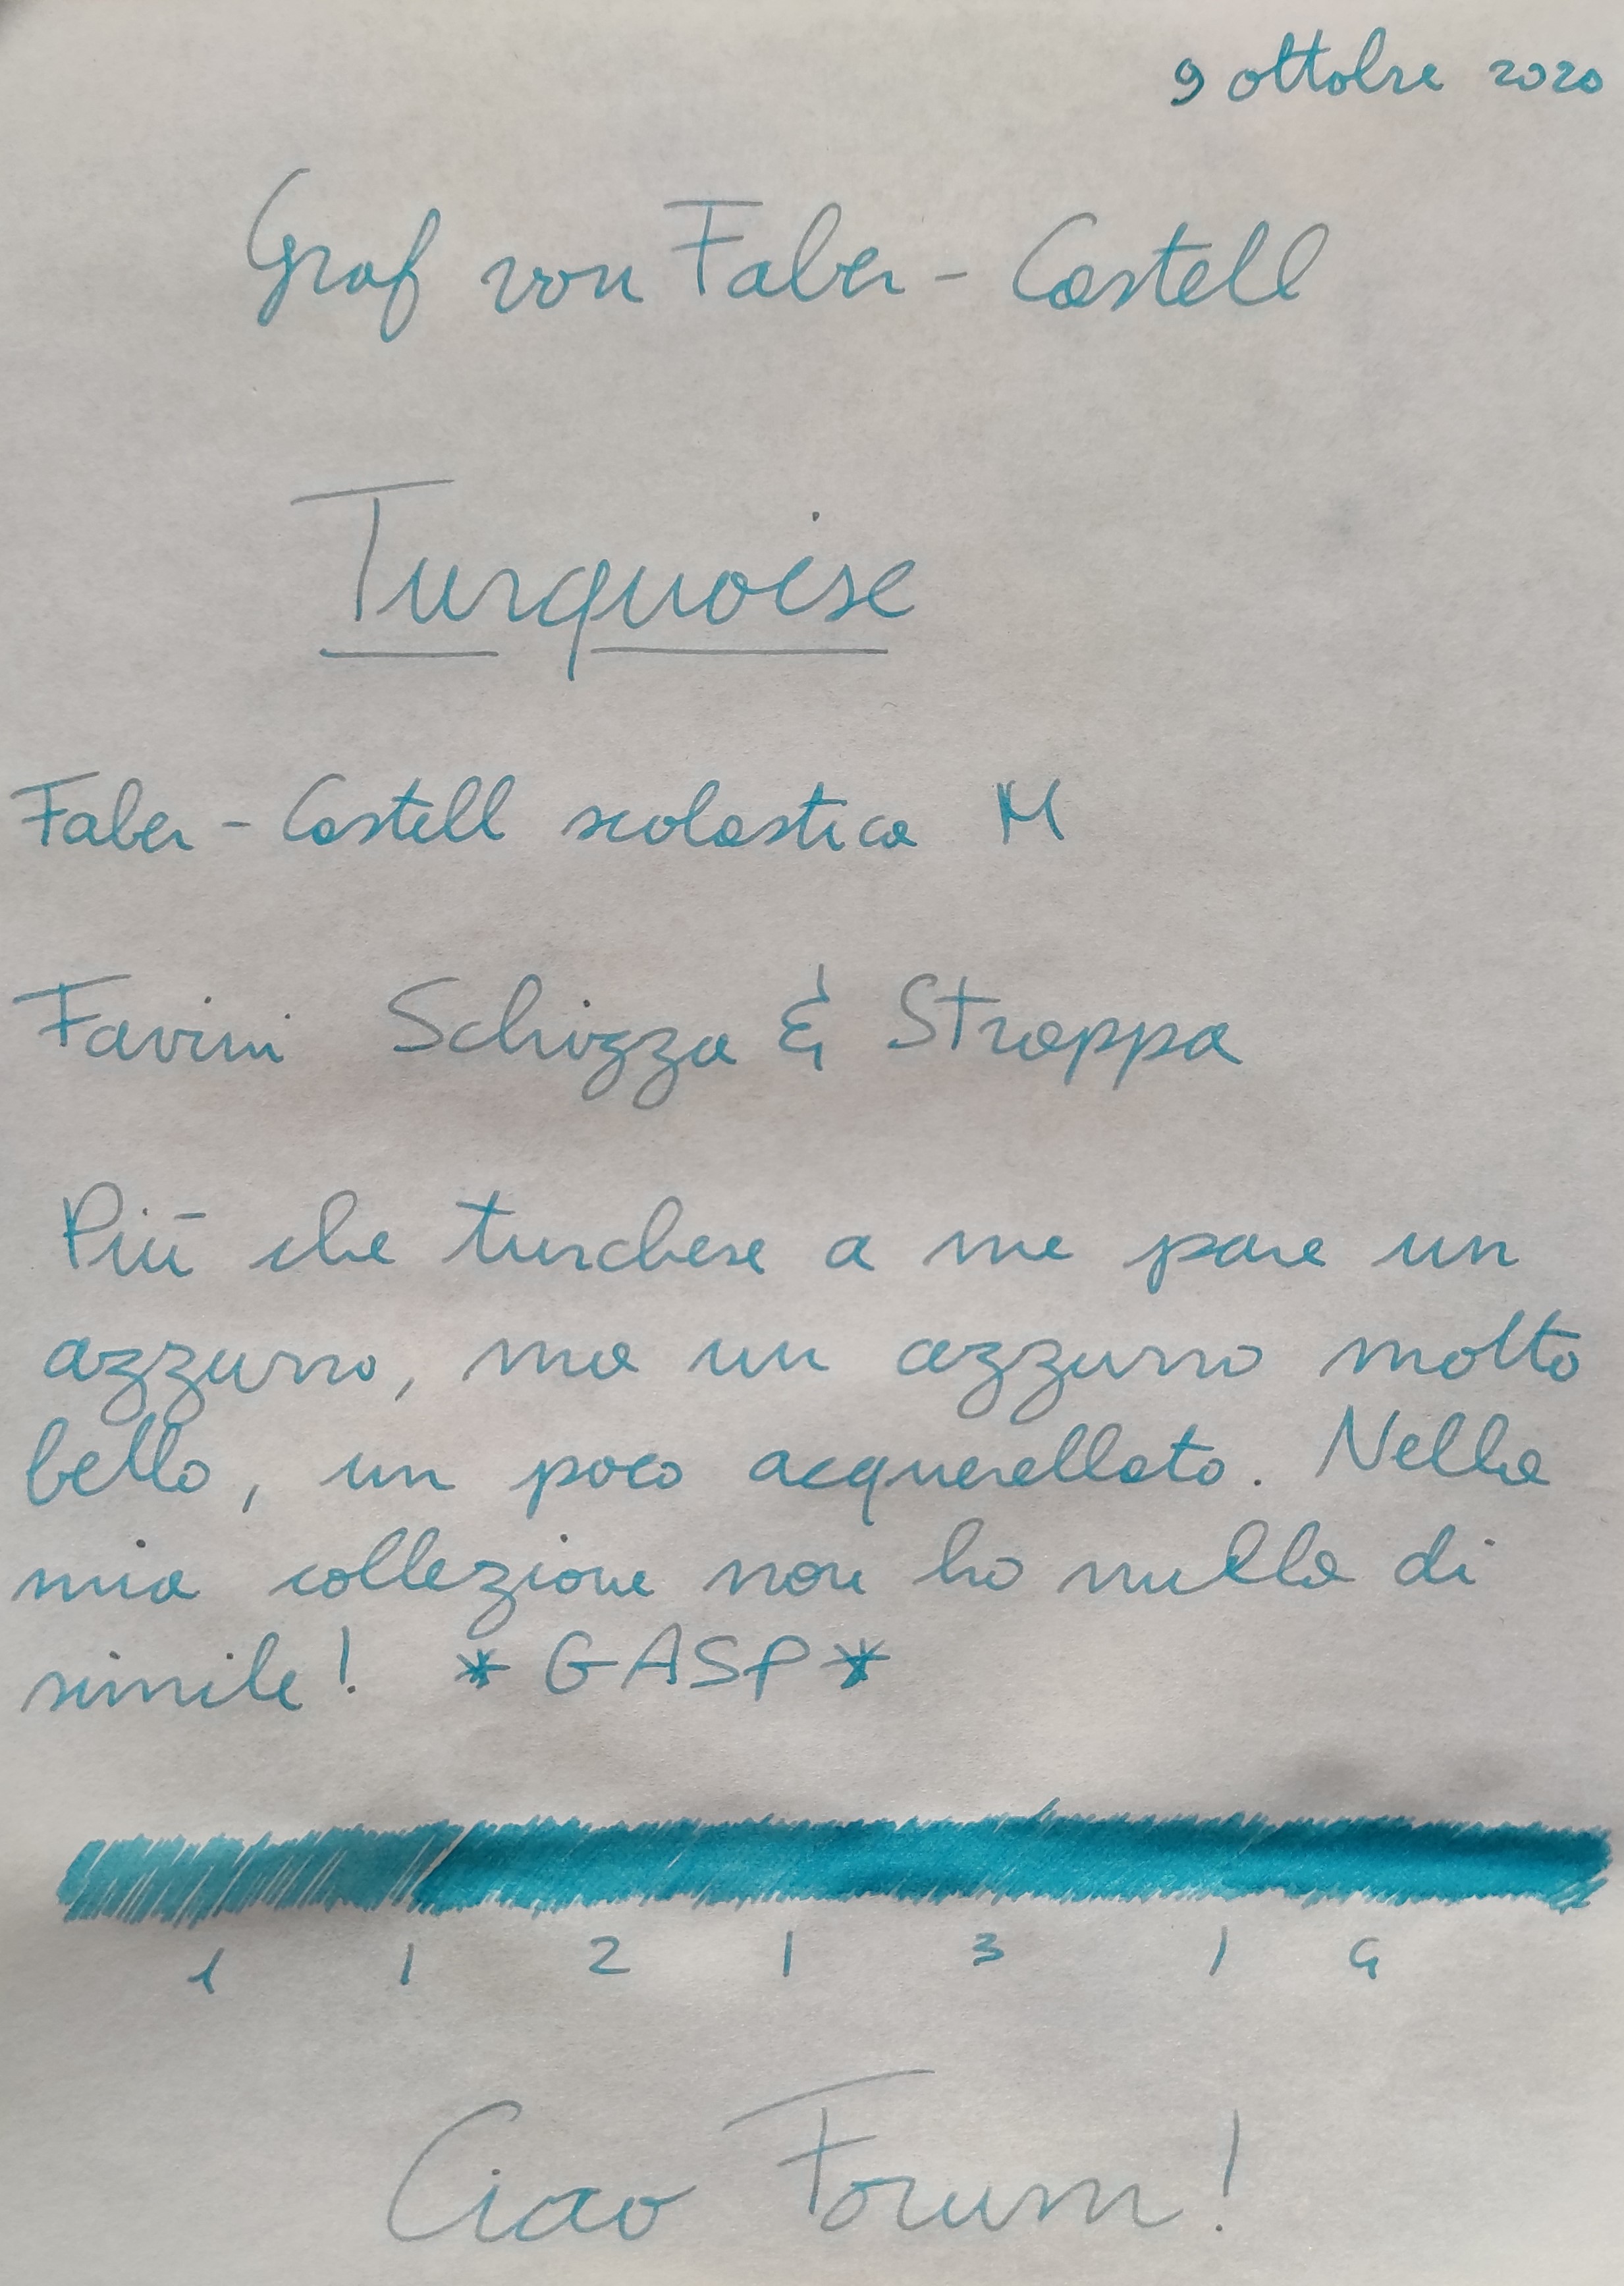 9 ottobre 2020
Graf von Faber-Castell
Turquoise
Faber-Castell scolastica M
Favini Schizza & Strappa
Più che turchese a me pare un
azzurro, ma un azzurro molto
bello, un poco acquerellato. Nella
mia collezione non ho nulla di
simile! *GASP*
1 | 2 | 3 | 4
Ciao Forum!